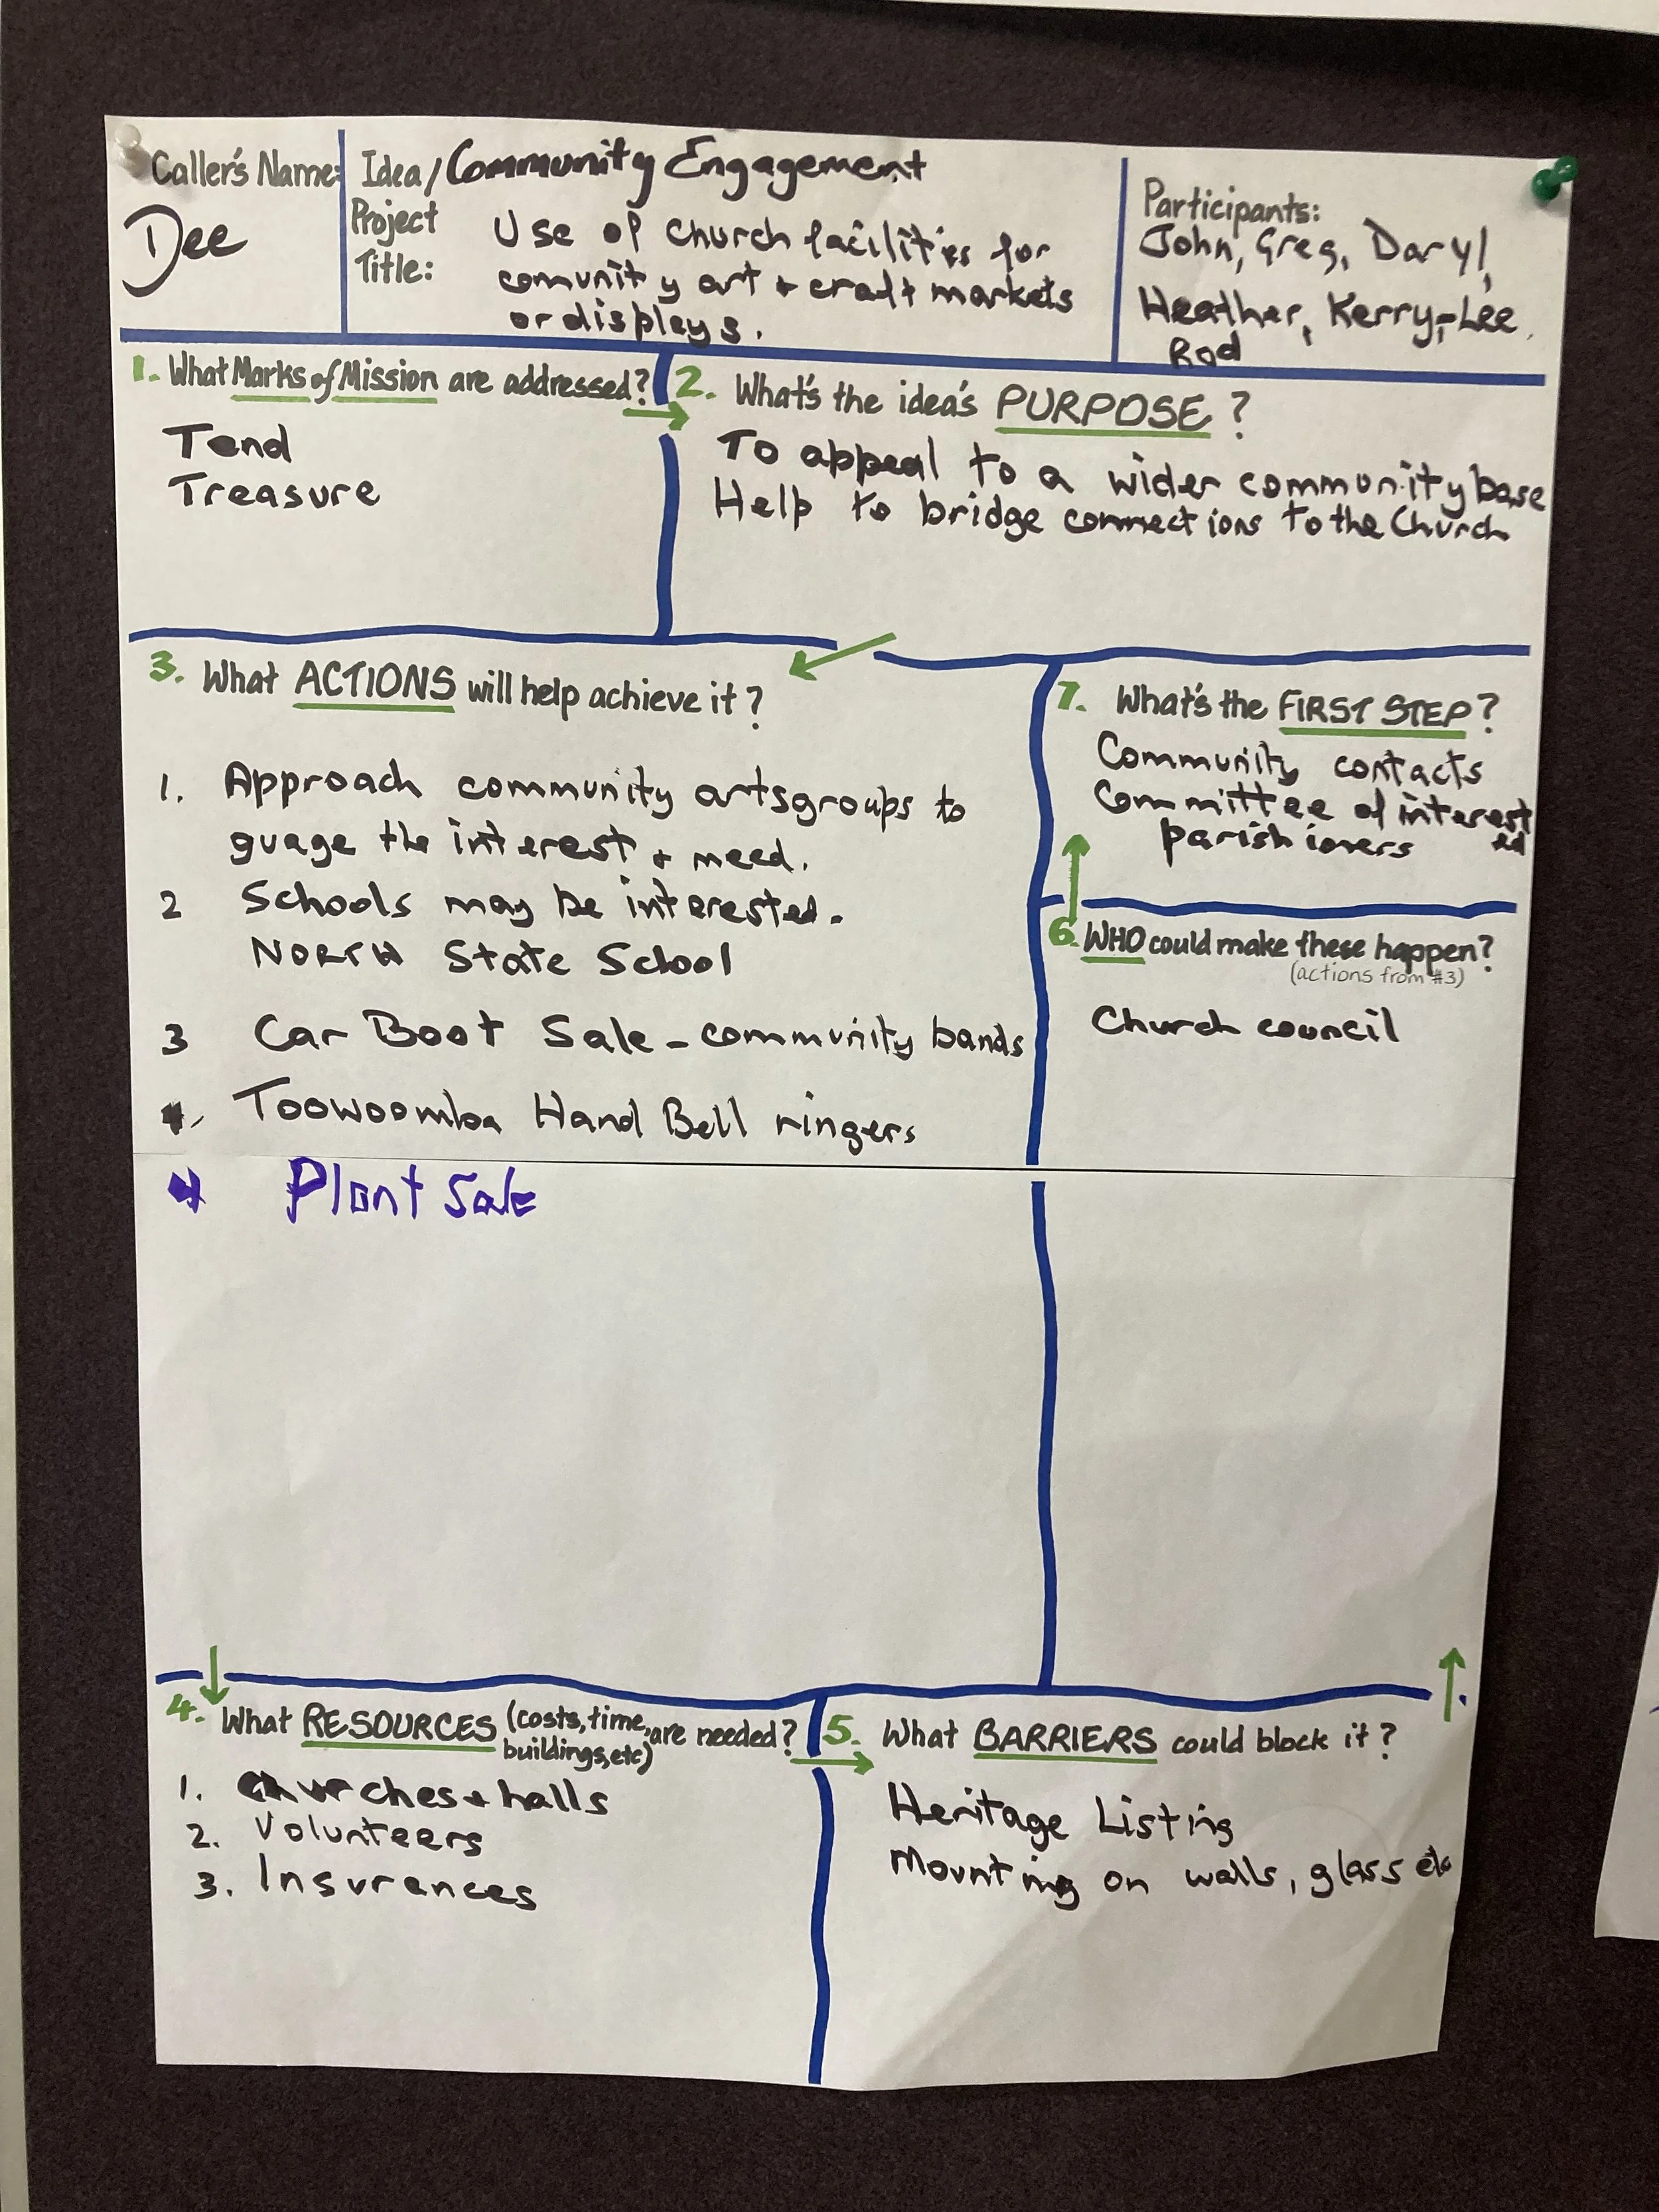 Caller's Name:
Dee
Idea/Community Engagement
Project
Title:
Use of Church facilities for
comunity art + craft markets
or displays.
Participants:
John, Greg, Daryl,
Heather, Kerry-Lee,
Rod
1. What Marks of Mission are addressed?
Tend
Treasure
2. What's the idea's PURPOSE?
To appeal to a wider community base
Help to bridge connections to the Church
3. What ACTIONS will help achieve it?
1. Approach community artsgroups to
guage the interest + need.
2 Schools may be interested.
NORTH State School
3 Car Boot Sale - community bands
Toowoomba Hand Bell ringers
4 Plant Sale
7. What's the FIRST STEP?
Community contacts
Committee of interested
parishioners
6. WHO could make these happen?
(actions from #3)
Church council
4. What RESOURCES (costs, time, buildings, etc) are needed?
1. Churches + halls
2. Volunteers
3. Insurances
5. What BARRIERS could block it?
Heritage Listing
Mounting on walls, glass etc